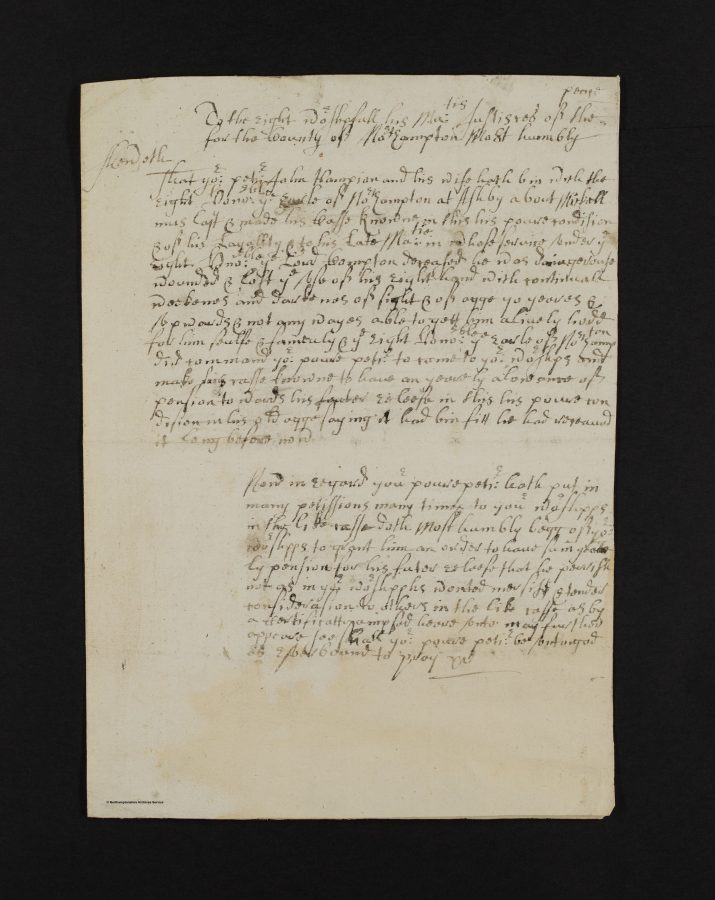 To the right wo:rshipfull his Ma:tis Justises of the peace
for the County of No:thampton Most humbly
Sheweth
That yo:r peti:r John Champion and his wife hath bin with the
Right Hono:ble ye Earle of No:thampton at Ashby about Mickell
mas last & made his Casse knowne in this his poure condision
& of his Loyallty & to his Late Ma:tie in whose servise under ye
right Hono:ble ye Lord Compton deceased he was daingerouse
wounded & lost ye Use of his right hand with continuall
weeknes and darknes of sight & of agge 70 yeares &
Upwards & not any wayes able to gett him a Lively hoode
for him selfe & famerly & ye Right Hono:ble ye Earle of No:thampton
did command yo:r poure peti:r to come to yo:r wo:rshps and
make his casse knowne to have an yearely alowance of
pension towards his releefe in this his poure con
dision in his old agge saying it had bin fitt he had receaved
it Long before now
Now in regard your poure peti:r hath put in
many petissions many times to your wo:rshipps
in the like casse doth Most humbly begg of yo:r
wo:rshipps to grant him an order to have sum yeare
ly pension for his futer releefe that he perrish
not as in yo:r wo:rshipps wonted mersi & tender
considerasion to others in the like casse as by
a Certificatt heere unto may further
appeare soe shall yo:r poure peti:r be unto god
as Ever bound to pray &c
© Northamptonshire Archives Service